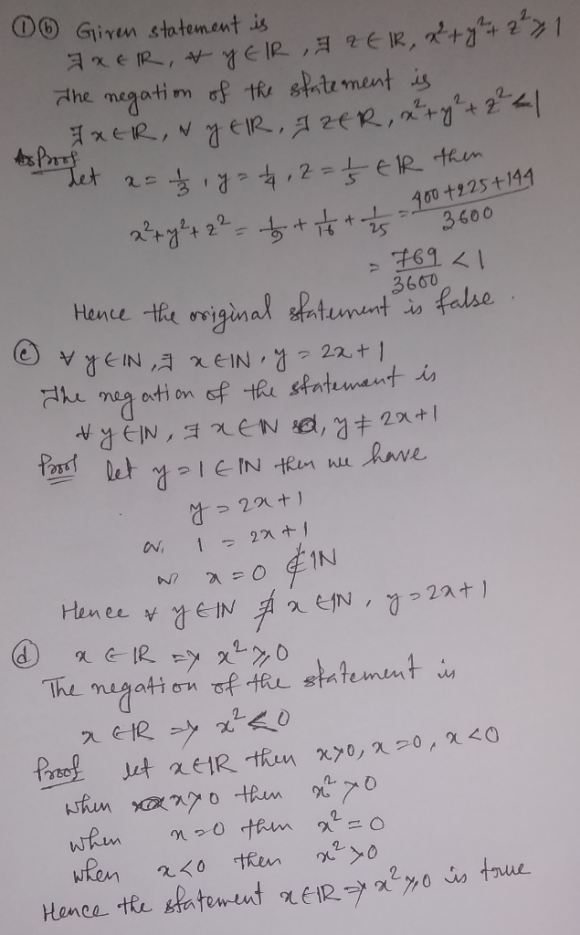 ① ⓑ Given statement is
∃ x ∈ ℝ, ∀ y ∈ ℝ, ∃ z ∈ ℝ, x²+y²+z² ≥ 1
The negation of the statement is
∃ x ∈ ℝ, ∀ y ∈ ℝ, ∃ z ∈ ℝ, x²+y²+z² < 1
Proof
Let x = 1/3, y = 1/4, z = 1/5 ∈ ℝ then
x²+y²+z² = 1/9 + 1/16 + 1/25 = 400+225+144 / 3600
= 769/3600 < 1
Hence the original statement is false.
ⓒ ∀ y ∈ ℕ, ∃ x ∈ ℕ, y = 2x+1
The negation of the statement is
∀ y ∈ ℕ, ∃ x ∈ ℕ, y ≠ 2x+1
Proof let y = 1 ∈ ℕ then we have
y = 2x+1
or, 1 = 2x+1
or x = 0 ∉ ℕ
Hence ∀ y ∈ ℕ ∄ x ∈ ℕ, y = 2x+1
ⓓ x ∈ ℝ ⇒ x² ≥ 0
The negation of the statement is
x ∈ ℝ ⇒ x² < 0
Proof let x ∈ ℝ then x>0, x=0, x<0
when x>0 then x²>0
when x=0 then x²=0
when x<0 then x²>0
Hence the statement x ∈ ℝ ⇒ x² ≥ 0 is true